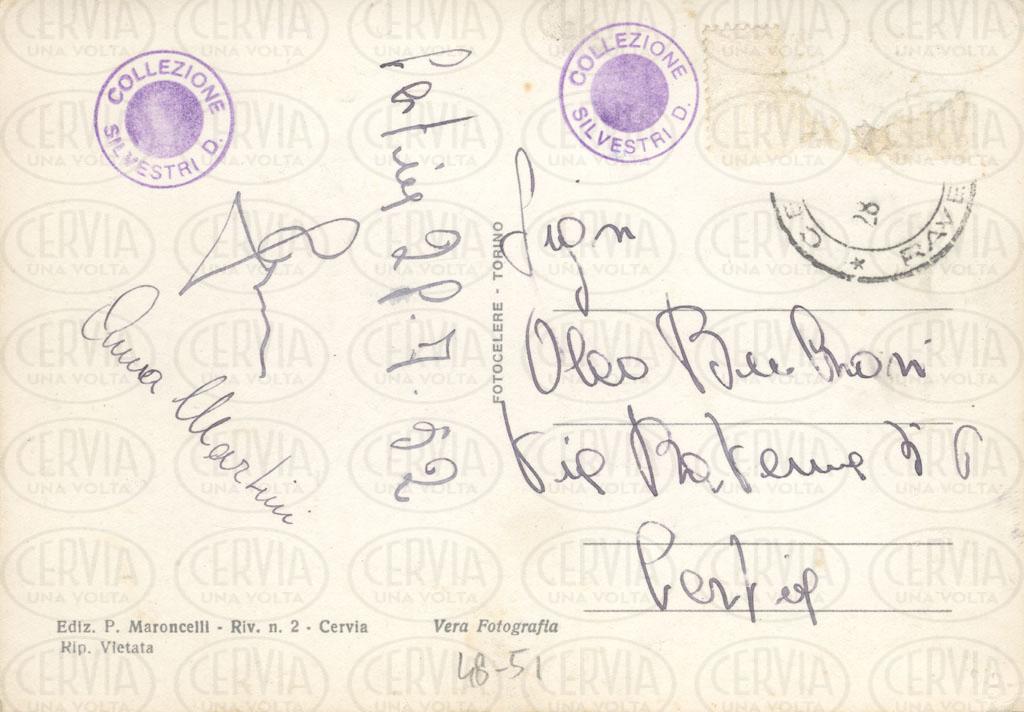 COLLEZIONE
SILVESTRI D.
COLLEZIONE
SILVESTRI D.
CE
28
* RAVE
Anna Martini
FOTOCELERE - TORINO
Sign
Via Ravenna
Cervia
Ediz. P. Maroncelli - Riv. n. 2 - Cervia
Rip. Vietata
Vera Fotografia
48-51
CERVIA
UNA VOLTA